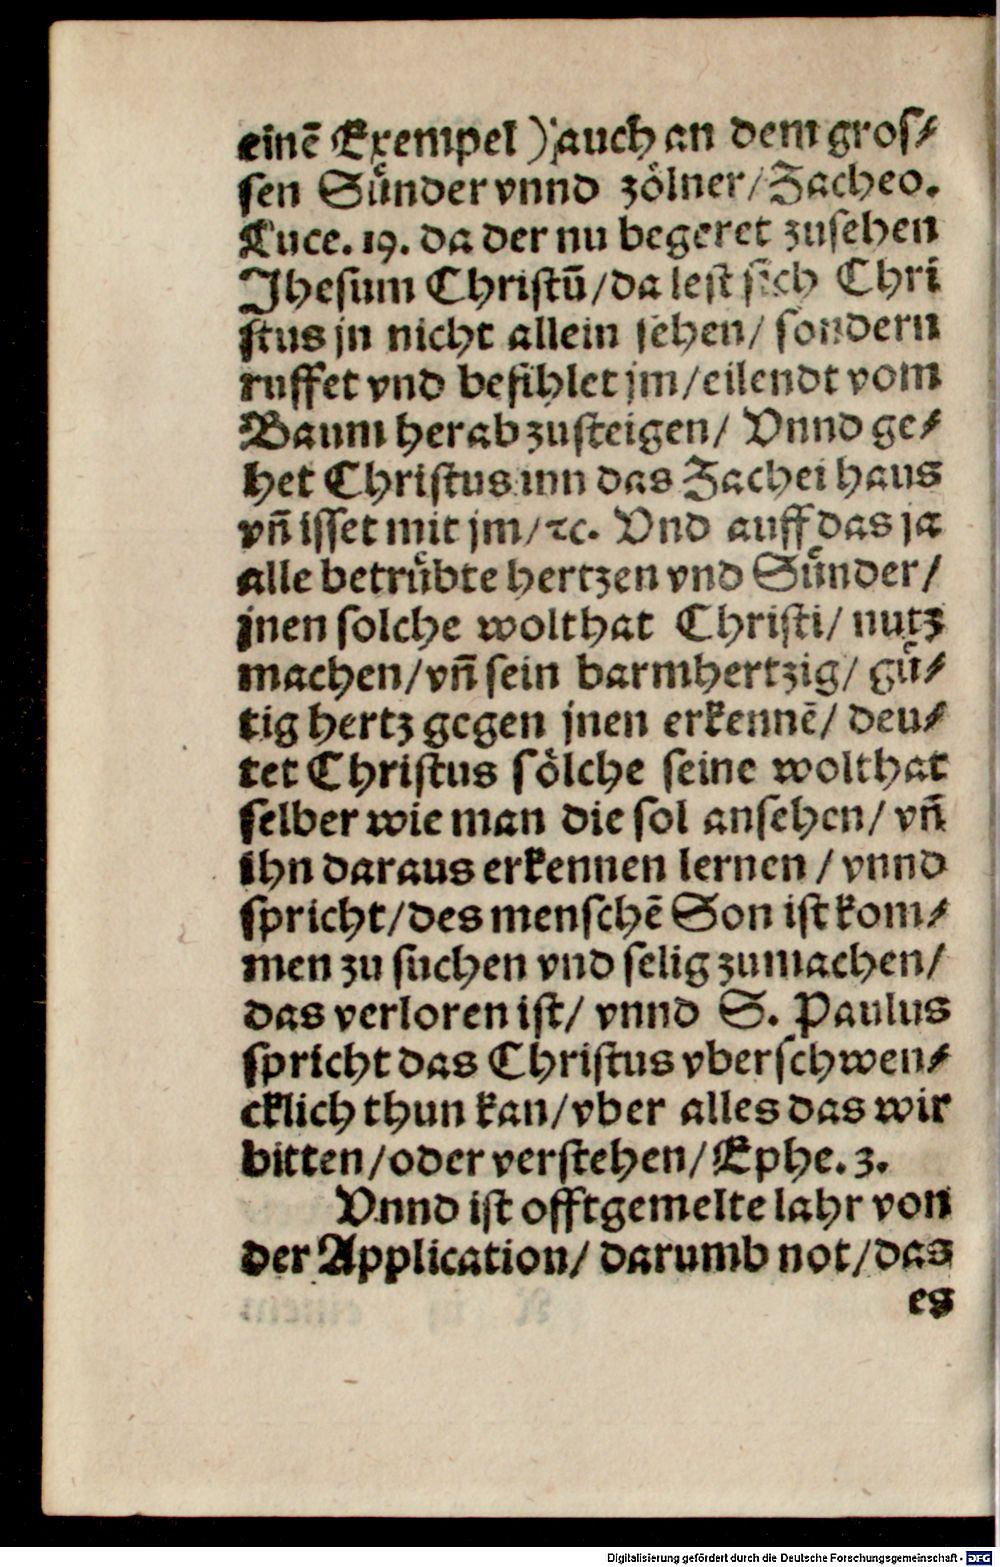 einē Exempel) auch an dem gros⸗
sen Suͤnder vnnd zoͤlner/ Zacheo.
Luce. 19. da der nu begeret zusehen
Jhesum Christū/ da lest sich Chri
stus jn nicht allein sehen/ sondern
ruffet vnd befihlet jm/ eilendt vom
Baum herab zusteigen/ Vnnd ge⸗
het Christus inn das Zachei haus
vn̄ isset mit jm/ ꝛc. Vnd auff das ja
alle betruͤbte hertzen vnd Suͤnder/
jnen solche wolthat Christi/ nutz
machen/ vn̄ sein barmhertzig/ guͤ⸗
tig hertz gegen jnen erkennē/ deu⸗
tet Christus soͤlche seine wolthat
selber wie man die sol ansehen/ vn̄
ihn daraus erkennen lernen/ vnnd
spricht/ des menschē Son ist kom⸗
men zu suchen vnd selig zumachen/
das verloren ist/ vnnd S. Paulus
spricht das Christus vberschwen⸗
cklich thun kan/ vber alles das wir
bitten/ oder verstehen/ Ephe. 3.
Vnnd ist offtgemelte lahr von
der Application/ darumb not/ das
es
Digitalisierung gefördert durch die Deutsche Forschungsgemeinschaft - DFG